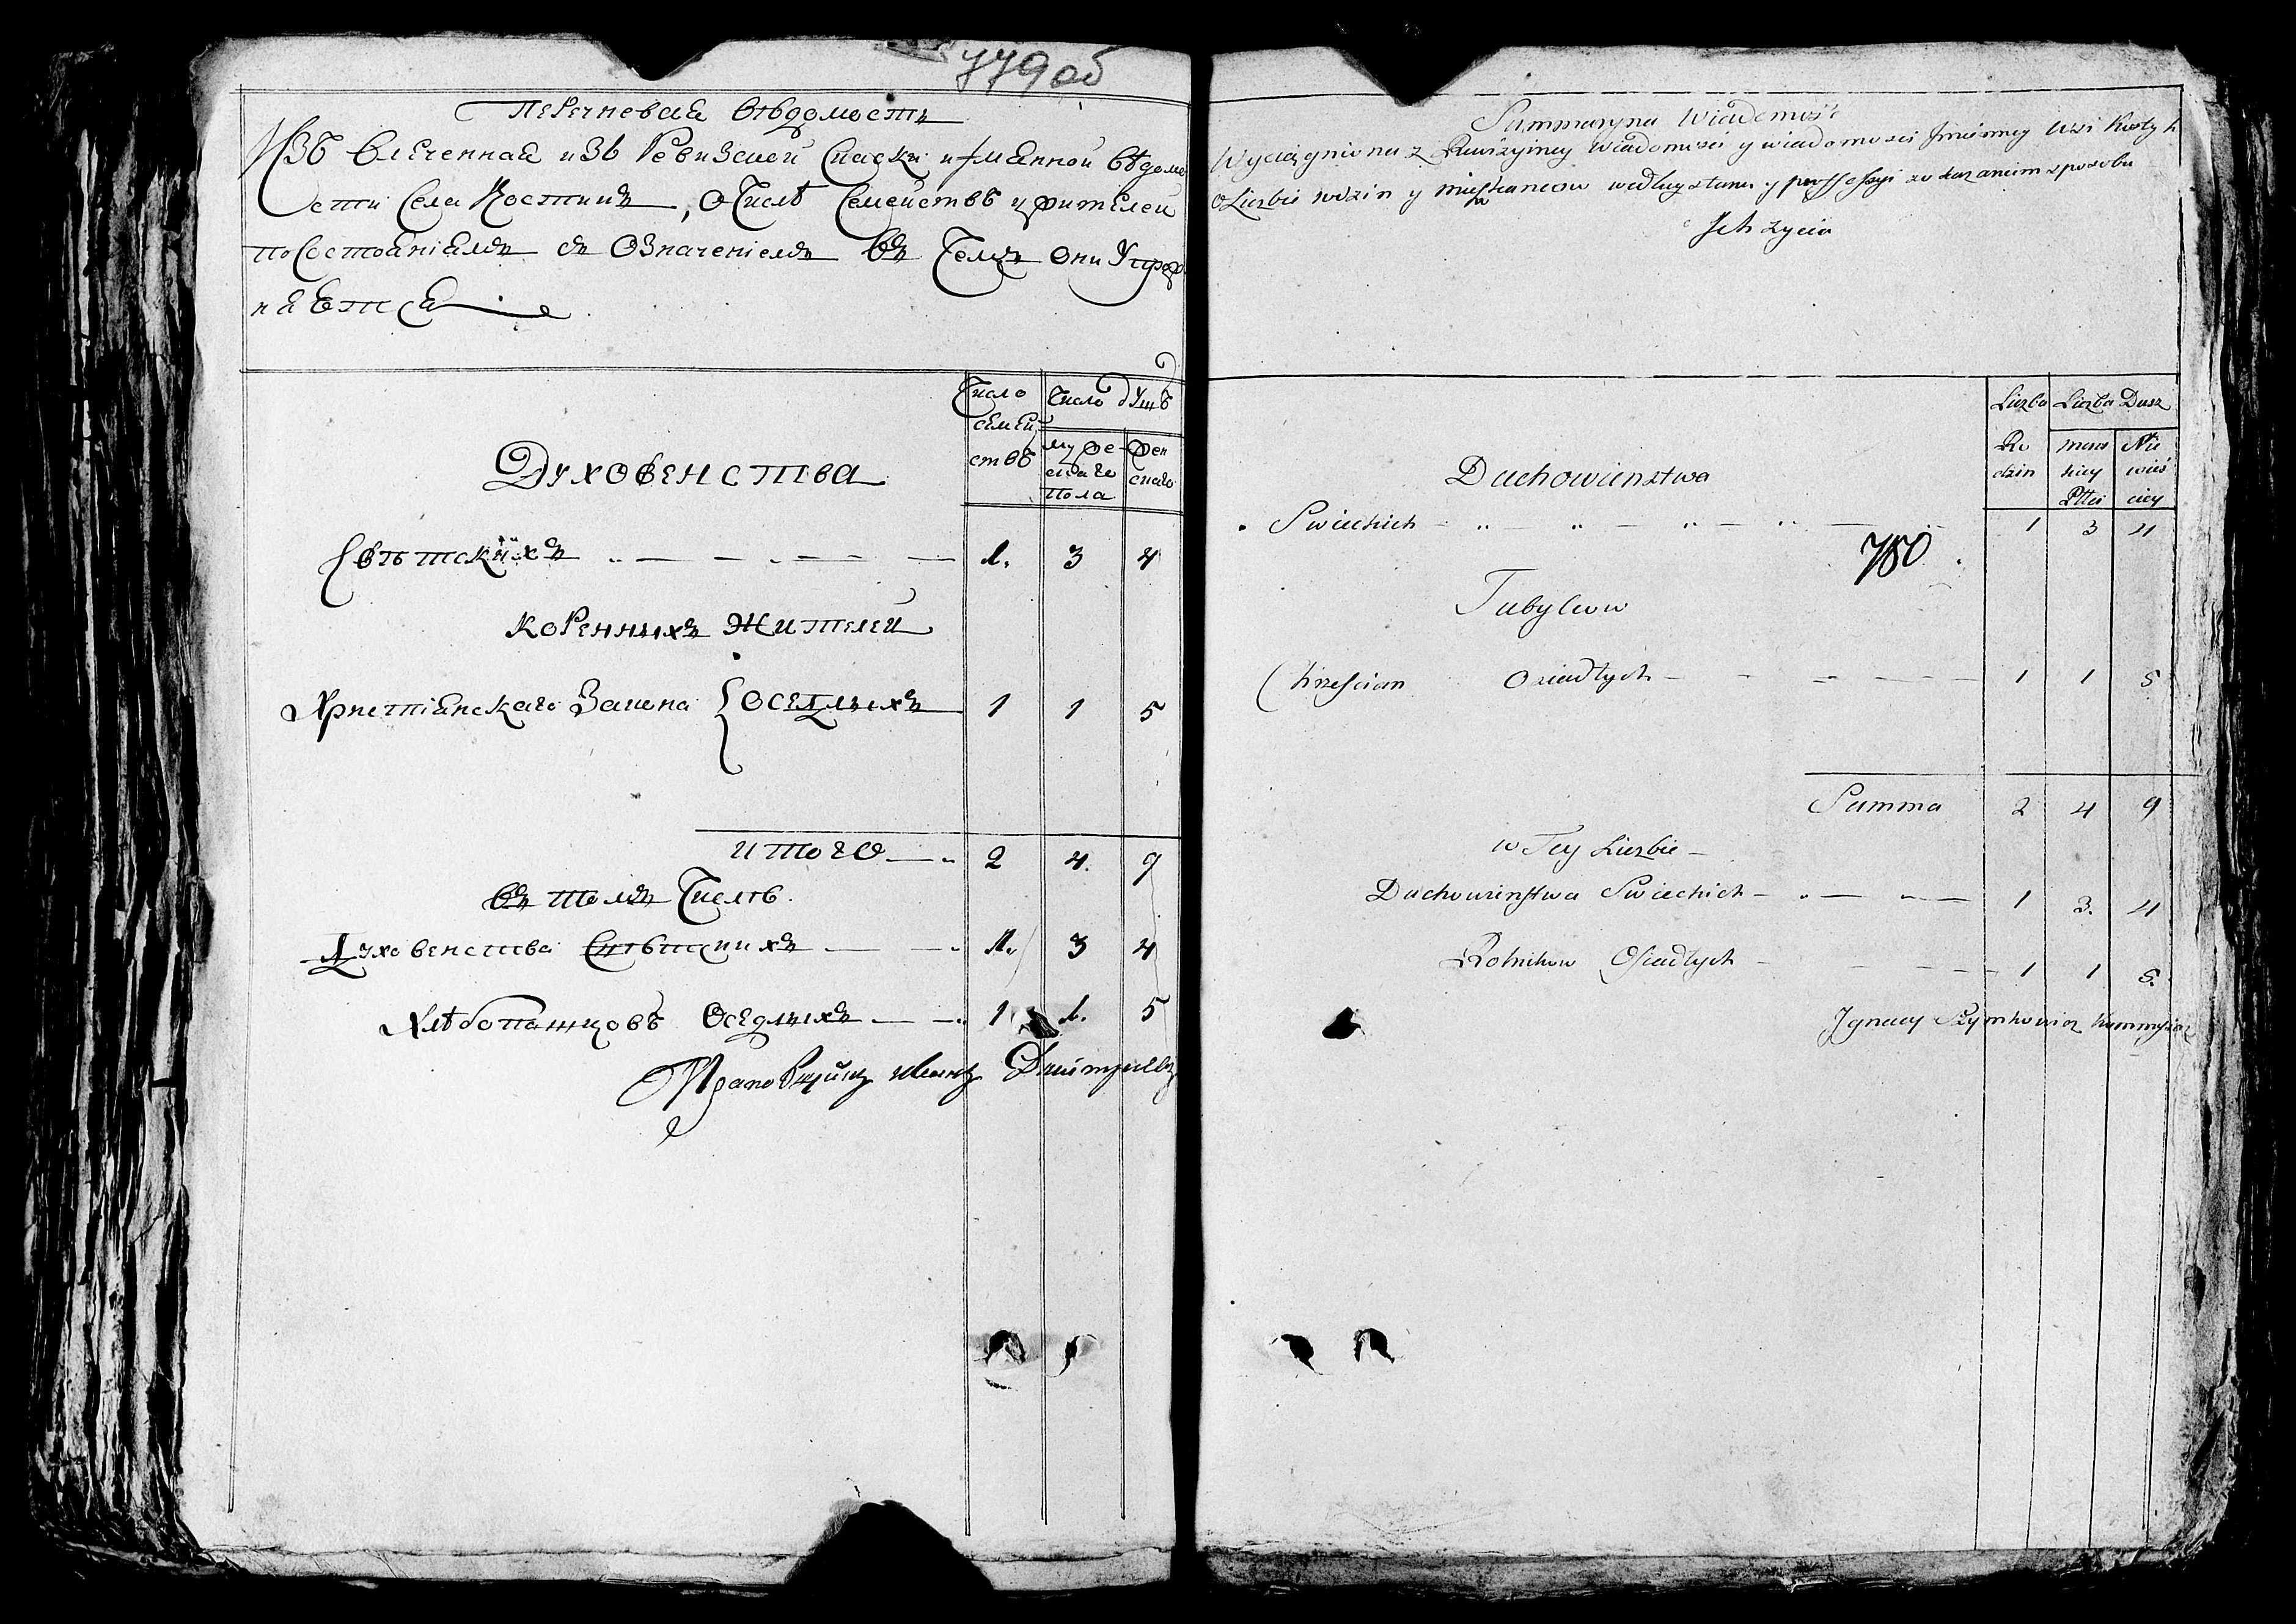 779 об
Перечневая вѣдомость
Извлеченная изъ Ревизской Сказки имянной вѣдомо
сти Села Костинъ, о Числѣ Семействъ и жителей
по Состояніямъ съ Означеніемъ въ Чемъ они Упраж
няется
Число Число душъ
семей
ствъ мужескаго пола женскаго
Духовенства
Свѣтскихъ 1. 3 4
Коренныхъ Жителей
Христіанскаго Закона Оседлыхъ 1 1 5
Итого 2 4. 9
въ томъ Числѣ
Духовенства Свѣтскихъ 1. 3 4
Хлѣбопашцовъ Оседлыхъ 1 1. 5
Summaryna Wiadomość
Wyciągniona z Rewizyiney Wiadomości y wiadomości Jmienney Wsi
o Liczbie rodzin y mieszkancow według stanu y professyi z okazaniem sposobu
Jch życia
Liczba Liczba Dusz
Rodzin męskiey Płci Niewieściey
Duchowieństwa
Swieckich 1 3 4
780
Tubylcow
Chrześcian Osiadłych 1 1 5
Summa 2 4 9
w Tey Liczbie
Duchowieństwa Swieckich 1 3. 4
Rolnikow Osiadłych 1 1 5.
Jgnacy Szymkowicz